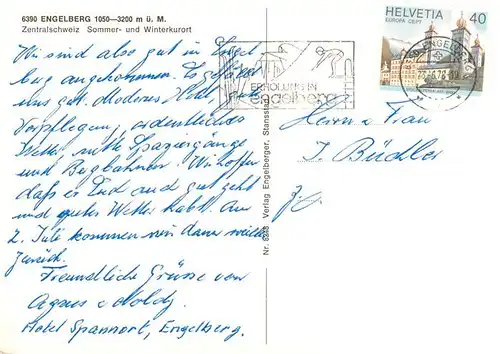 6390 ENGELBERG 1050—3200 m ü. M.
Zentralschweiz Sommer- und Winterkurort
Wir sind also gut in Engel-
berg angekommen. Es gefällt
uns gut. Modernes Hotel, gute
Verpflegung, ordentliches
Wetter, nette Spaziergänge
und Bergbahnen. Wir hoffen
daß es Euch auch gut geht
und gutes Wetter habt. Am
2. Juli kommen wir dann wieder
zurück.
Freundliche Grüsse von
Agnes + Noldy
Hotel Spannort, Engelberg.
Nr. Verlag Engelberger, Stansstad
ERHOLUNG IN
engelberg
HELVETIA 40
EUROPA CEPT
ENGELBERG
Herrn u. Frau
J. Büchler